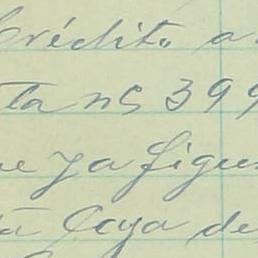 Crédito a
ta nº 399
ue ya figu
tá Goya de